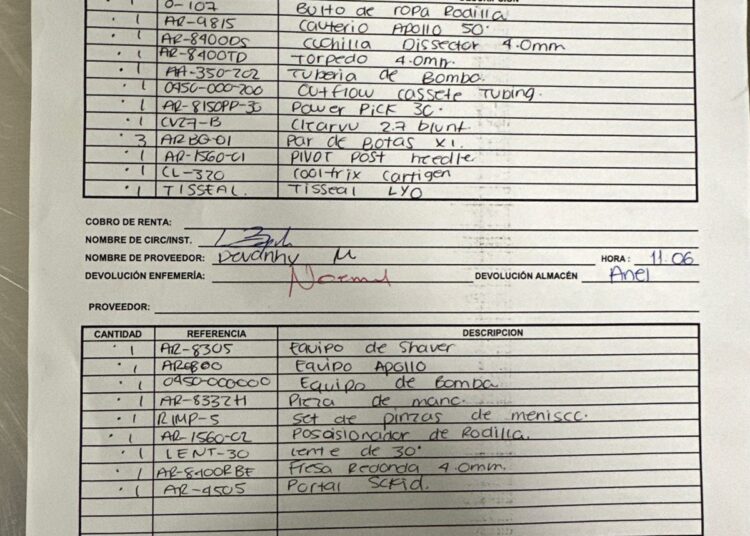 1 0-107 Bulto de ropa Rodilla
1 AR-9815 Cauterio Apollo 50°
1 AR-8400DS Cuchilla Dissector 4.0mm
1 AR-8400TD Torpedo 4.0mm.
1 AA-350-202 Tuberia de Bomba.
1 0450-000-200 Outflow Cassete Tubing.
1 AR-8150PP-30 Power Pick 30°
1 CV27-B Clearvu 2.7 blunt.
3 ARBG-01 Par de Botas XL.
1 AR-1560-C1 PIVOT Post Needle
1 CL-320 Cooltrix Cartigen
1 TISSEAL. Tisseal LYO
COBRO DE RENTA:
NOMBRE DE CIRC/INST.
NOMBRE DE PROVEEDOR: Devanhy M HORA: 11.06
DEVOLUCIÓN ENFERMERÍA: DEVOLUCIÓN ALMACÉN Anel
PROVEEDOR:
CANTIDAD REFERENCIA DESCRIPCION
1 AR-8305 Equipo de Shaver
1 AR9800 Equipo Apollo
1 0450-000000 Equipo de Bomba
1 AR-8332H Pieza de mano.
1 RIMP-5 Set de pinzas de menisco.
1 AR-1560-C2 Posisionador de Rodilla.
1 LENT-30 Lente de 30°
1 AR-8400RBE Fresa Redonda 4.0mm.
1 AR-4505 Portal Sckid.